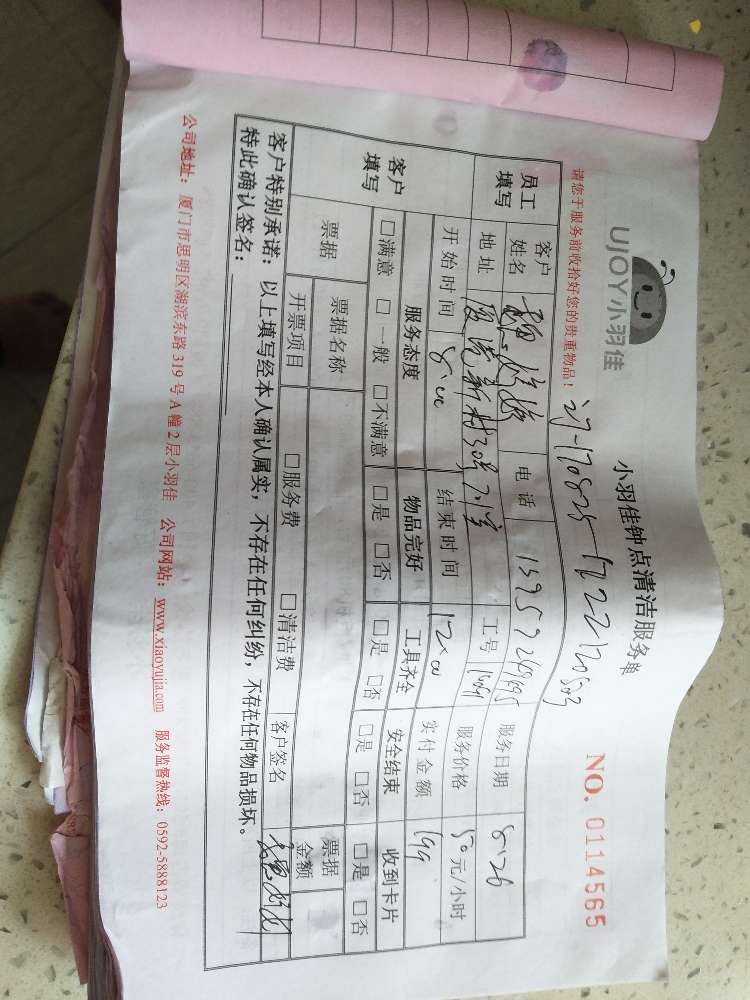 UJOY小羽佳
小羽佳钟点清洁服务单
NO. 0114565
请您于服务前收拾好您的贵重物品！
员工填写
客户姓名
电话
服务日期 8.26
地址
工号
服务价格 50元/小时
开始时间 8:00
结束时间 12:00
实付金额 199
客户填写
服务态度 物品完好 工具齐全 安全结束 收到卡片
□满意 □一般 □不满意 □是 □否 □是 □否 □是 □否 □是 □否
票据
票据名称
票据金额
开票项目 □服务费 □清洁费
客户签名
客户特别承诺：以上填写经本人确认属实，不存在任何纠纷，不存在任何物品损坏。
特此确认签名：
公司地址：厦门市思明区湖滨东路319号A幢2层小羽佳 公司网站：www.xiaoyujia.com 服务监督热线：0592-5888123